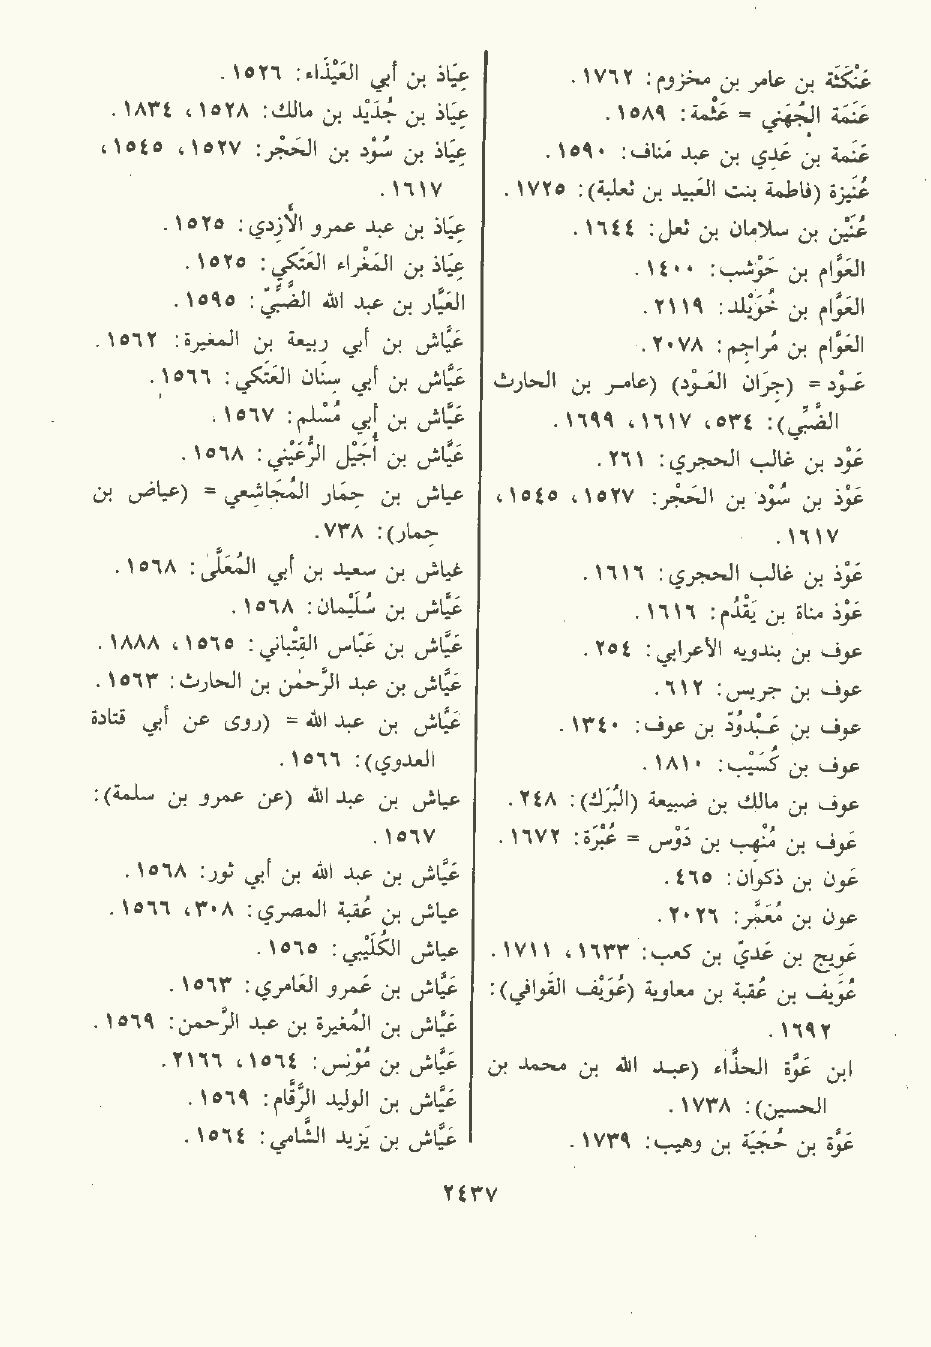 عَنْكَثَة بن عامر بن مخزوم: ١٧٦٢.
عَنَمَة الجُهَني = عَثْمة: ١٥٨٩.
عَنَمة بن عَدِي بن عبد مَناف: ١٥٩٠.
عُنَيزة (فاطمة بنت العَبيد بن ثعلبة): ١٧٢٥.
عُنَيْن بن سلامان بن ثعل: ١٦٤٤.
العَوَّام بن حَوْشب: ١٤٠٠.
العَوَّام بن خُوَيْلد: ٢١١٩.
العَوَّام بن مُراجِم: ٢٠٧٨.
عَـوْد = (جِرَان العَـوْد) (عامـر بن الحارث
الضَّبِّي): ٥٣٤، ١٦١٧، ١٦٩٩.
عَوْد بن غالب الحجري: ٢٦١.
عَوْذ بن سُوْد بن الحَجْر: ١٥٢٧، ١٥٤٥،
١٦١٧.
عَوْذ بن غالب الحجري: ١٦١٦.
عَوْذ مناة بن يَقْدُم: ١٦١٦.
عوف بن بندويه الأعرابي: ٢٥٤.
عوف بن جريس: ٦١٢.
عوف بن عَـبْدُوَدّ بن عوف: ١٣٤٠.
عوف بن كُسَيْب: ١٨١٠.
عوف بن مالك بن ضبيعة (البُرَك): ٢٤٨.
عَوف بن مُنْهِب بن دَوْس = عُبْرَة: ١٦٧٢.
عَون بن ذكوان: ٤٦٥.
عون بن مُعَمَّر: ٢٠٢٦.
عَويج بن عَديّ بن كعب: ١٦٣٣، ١٧١١.
عُوَيف بن عُقبة بن معاوية (عُوَيْف القَوافي):
١٦٩٢.
ابن عَوَّة الحذَّاء (عبـد الله بن محمد بن
الحسين): ١٧٣٨.
عَوَّة بن حُجَيَّة بن وهيب: ١٧٣٩.
عِيَاذ بن أبي العَيْذَاء: ١٥٢٦.
عِيَاذ بن جُدَيْد بن مالك: ١٥٢٨، ١٨٣٤.
عِيَاذ بن سُوْد بن الحَجْر: ١٥٢٧، ١٥٤٥،
١٦١٧.
عِيَاذ بن عبد عمرو الأَزدِي: ١٥٢٥.
عِيَاذ بن المَغْراء العَتَكِي: ١٥٢٥.
العَيَّار بن عبد الله الضَّبِّيّ: ١٥٩٥.
عَيَّاش بن أبي ربيعة بن المغيرة: ١٥٦٢.
عَيَّاش بن أبي سِنَان العَتَكي: ١٥٦٦.
عَيَّاش بن أبي مُسْلم: ١٥٦٧.
عَيَّاش بن أُجَيْل الرُّعَيْني: ١٥٦٨.
عياش بن حِمَار المُجَاشِعي = (عياض بن
حِمار): ٧٣٨.
عياش بن سعيد بن أبي المُعَلَّى: ١٥٦٨.
عَيَّاش بن سُلَيْمان: ١٥٦٨.
عَيَّاش بن عَبَّاس القِتْباني: ١٥٦٥، ١٨٨٨.
عَيَّاش بن عبد الرَّحمٰن بن الحارث: ١٥٦٣.
عَيَّاش بن عبد الله = (روى عن أبي قتادة
العدوي): ١٥٦٦.
عياش بن عبد الله (عن عمرو بن سلمة):
١٥٦٧.
عَيَّاش بن عبد الله بن أبي ثور: ١٥٦٨.
عياش بن عُقبة المصري: ٣٠٨، ١٥٦٦.
عياش الكُلَيْبي: ١٥٦٥.
عَيَّاش بن عَمرو العَامري: ١٥٦٣.
عَيَّاش بن المُغيرة بن عبد الرَّحمن: ١٥٦٩.
عَيَّاش بن مُوْنِس: ١٥٦٤، ٢١٦٦.
عَيَّاش بن الوليد الرَّقَّام: ١٥٦٩.
عَيَّاش بن يَزيد الشَّامي: ١٥٦٤.
٢٤٣٧